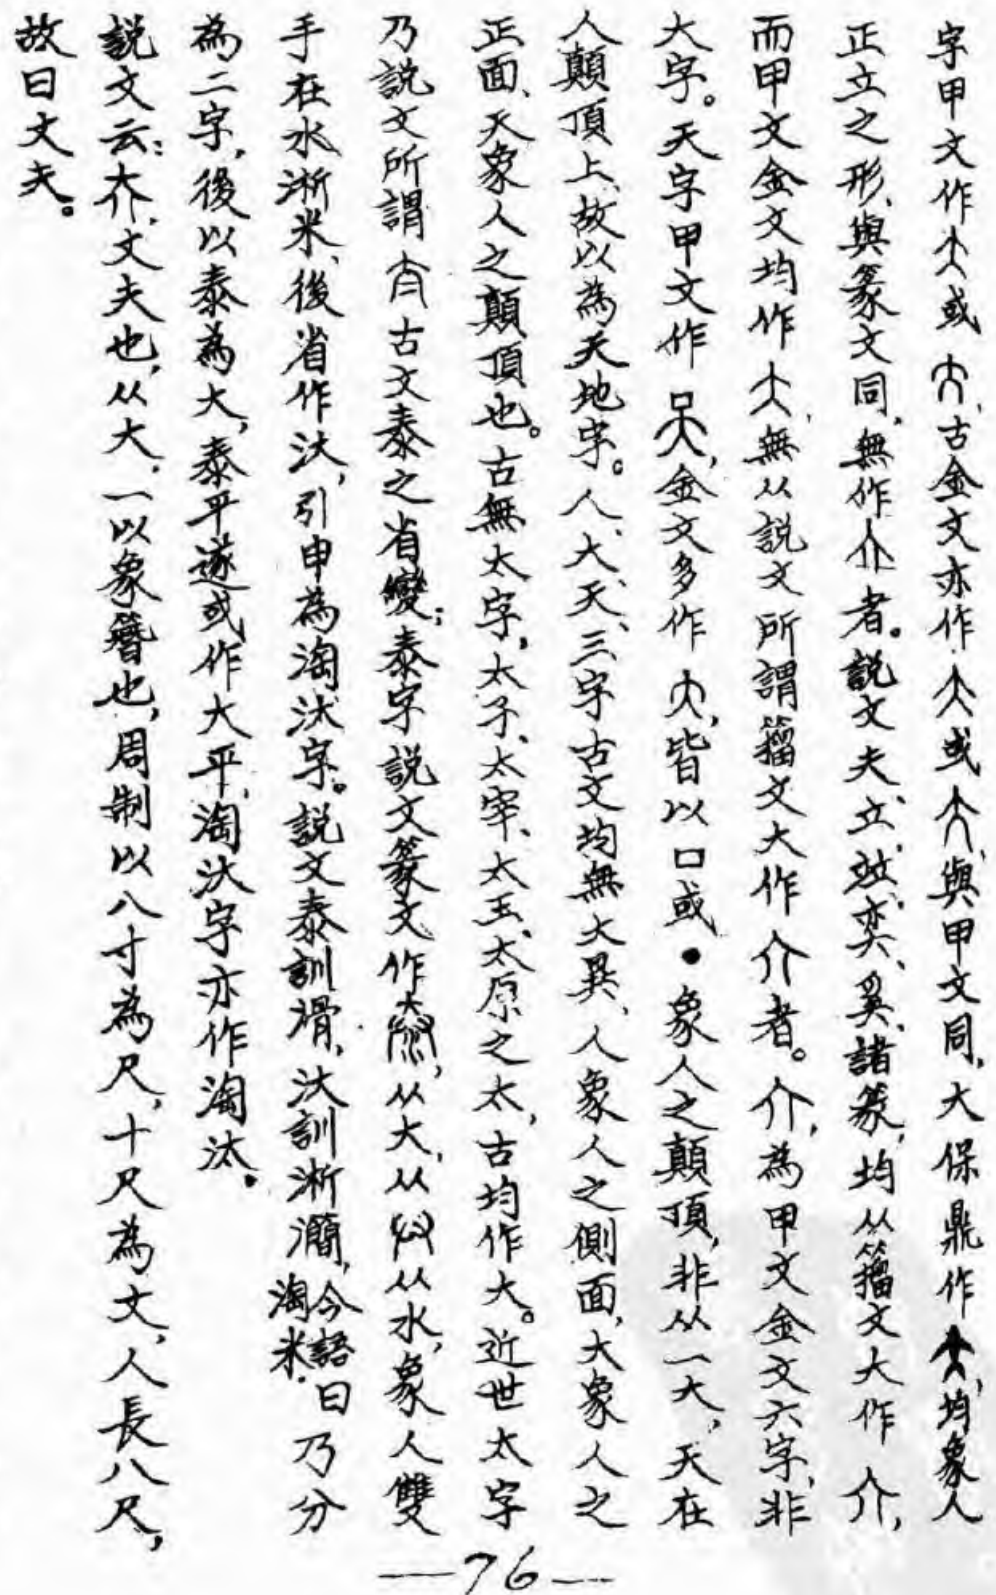 字甲文作大或大,古金文亦作大或大,與甲文同,大保鼎作大,均象人
正立之形,與篆文同,無作介者。說文夫、立、竝、奕、奚、諸篆,均从籀文大作介,
而甲文金文均作大,無从說文所謂籀文大作介者。介,為甲文金文六字,非
大字。天字甲文作,金文多作,皆以口或●象人之顛頂,非从一大,天在
人顛頂上、故以為天地字。人、大、天、三字古文均無大異、人象人之側面,大象人之
正面、天象人之顛頂也。古無太字,太子、太宰、太王、太原之太,古均作大。近世太字
乃說文所謂古文泰之省變;泰字說文篆文作,从大,从从水,象人雙
手在水淅米、後省作汏,引申為淘汰字。說文泰訓滑,汏訓淅灡,今語曰淘米.乃分
為二字,後以泰為大,泰平遂或作大平,淘汏字亦作淘汰.
說文云:夫,丈夫也,从大,一以象簪也,周制以八寸為尺,十尺為丈,人長八尺,
故曰丈夫。
—76—